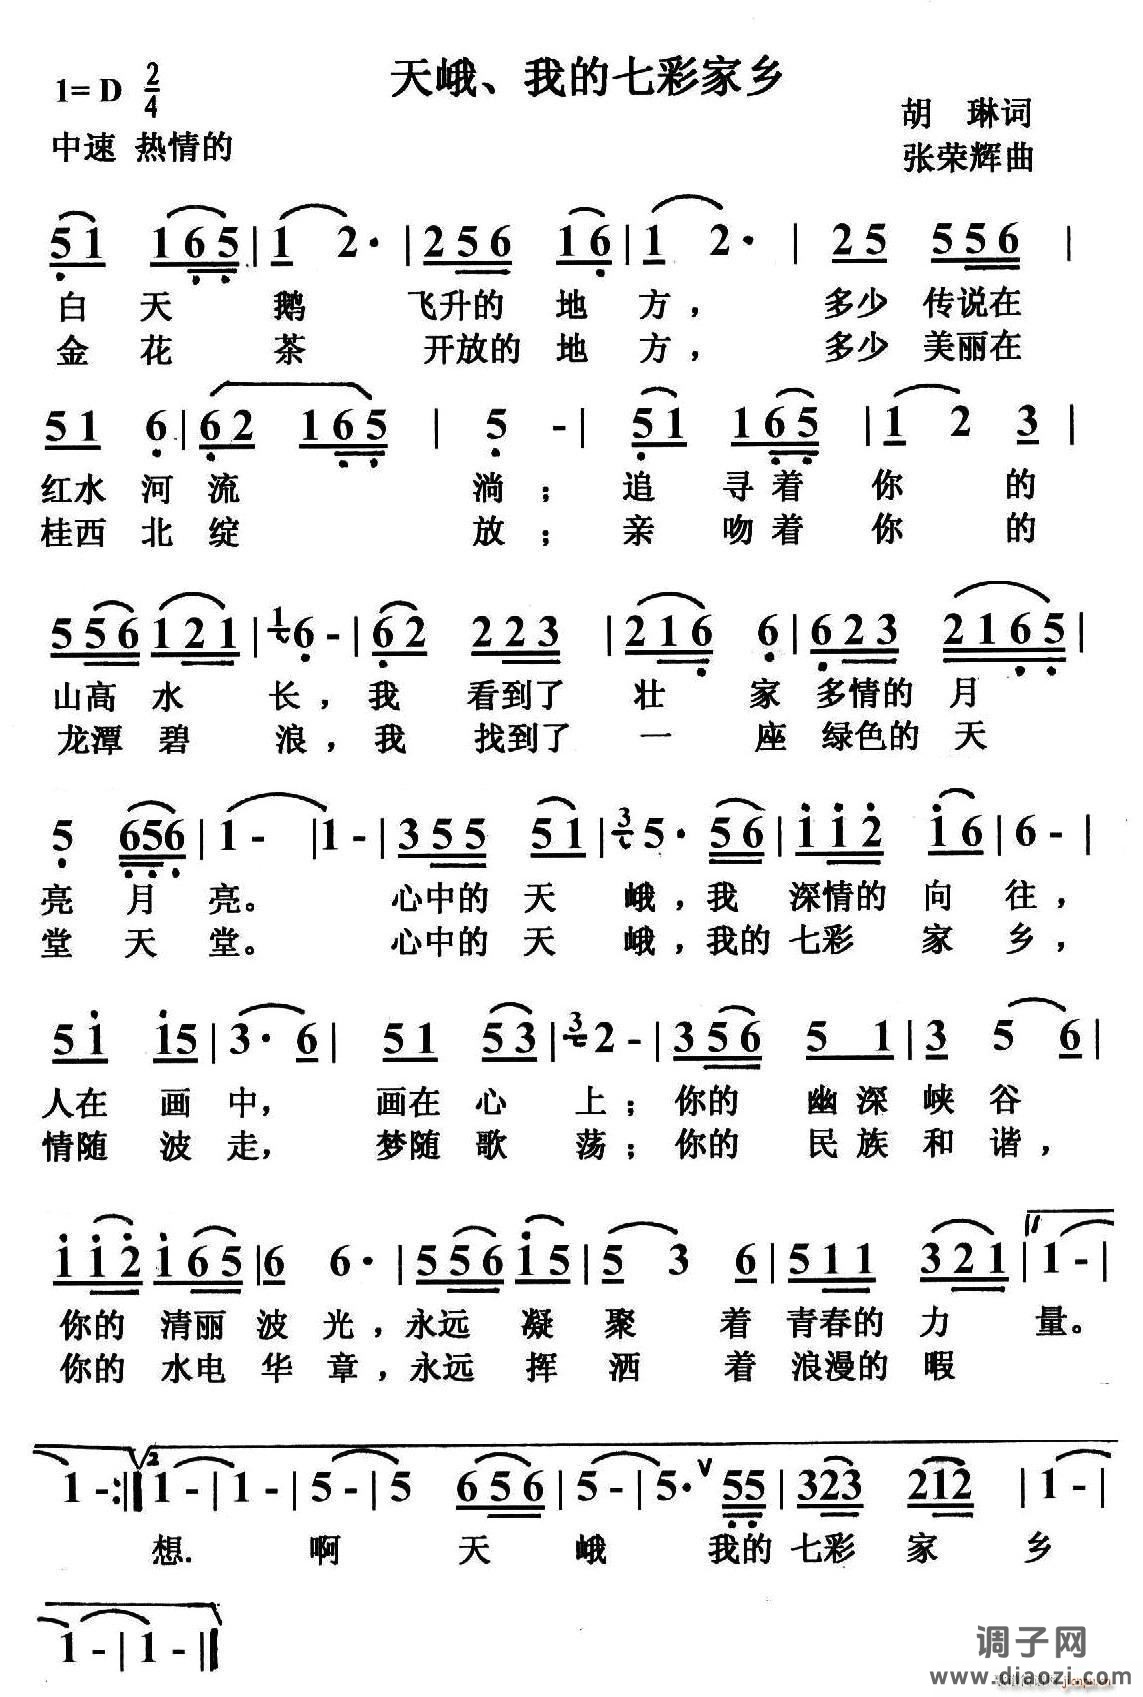 天峨、我的七彩家乡
1= D 2/4
胡 琳词
中速 热情的
张荣辉曲
51 165 | 1 2· | 256 16 | 1 2· | 25 556 |
白 天 鹅 飞升的 地 方， 多少 传说在
金 花 茶 开放的 地 方， 多少 美丽在
51 6 | 62 165 | 5 - | 51 165 | 1 2 3 |
红水 河 流 淌； 追 寻 着 你 的
桂西 北 绽 放； 亲 吻 着 你 的
556 121 | 1/6 6 - | 62 223 | 216 6 | 623 2165 |
山高 水 长，我 看到了 壮 家 多情的 月
龙潭 碧 浪，我 找到了 一 座 绿色的 天
5 656 | 1 - | 1 - | 355 51 | 3 5· 56 | 112 16 | 6 - |
亮 月 亮。 心中的 天 峨，我 深情的 向 往，
堂 天 堂。 心中的 天 峨，我的 七彩 家 乡，
51 15 | 3· 6 | 51 53 | 3 2 - | 356 5 1 | 3 5 6 |
人在 画 中， 画在 心 上；你的 幽 深 峡 谷
情随 波 走， 梦随 歌 荡；你的 民 族 和 谐，
112 165 | 6 6· | 556 15 | 5 3 6 | 511 321 | 1 - |
你的 清丽 波 光，永远 凝 聚 着 青春的 力 量。
你的 水电 华 章，永远 挥 洒 着 浪漫的 暇
1 - :‖ 2 1 - | 1 - | 5 - | 5 656 | 5 - | 5· ∨ 55 | 323 212 | 1 - |
想. 啊 天 峨 我的 七彩 家 乡
1 - | 1 - ‖
调子网
www.diaozi.com